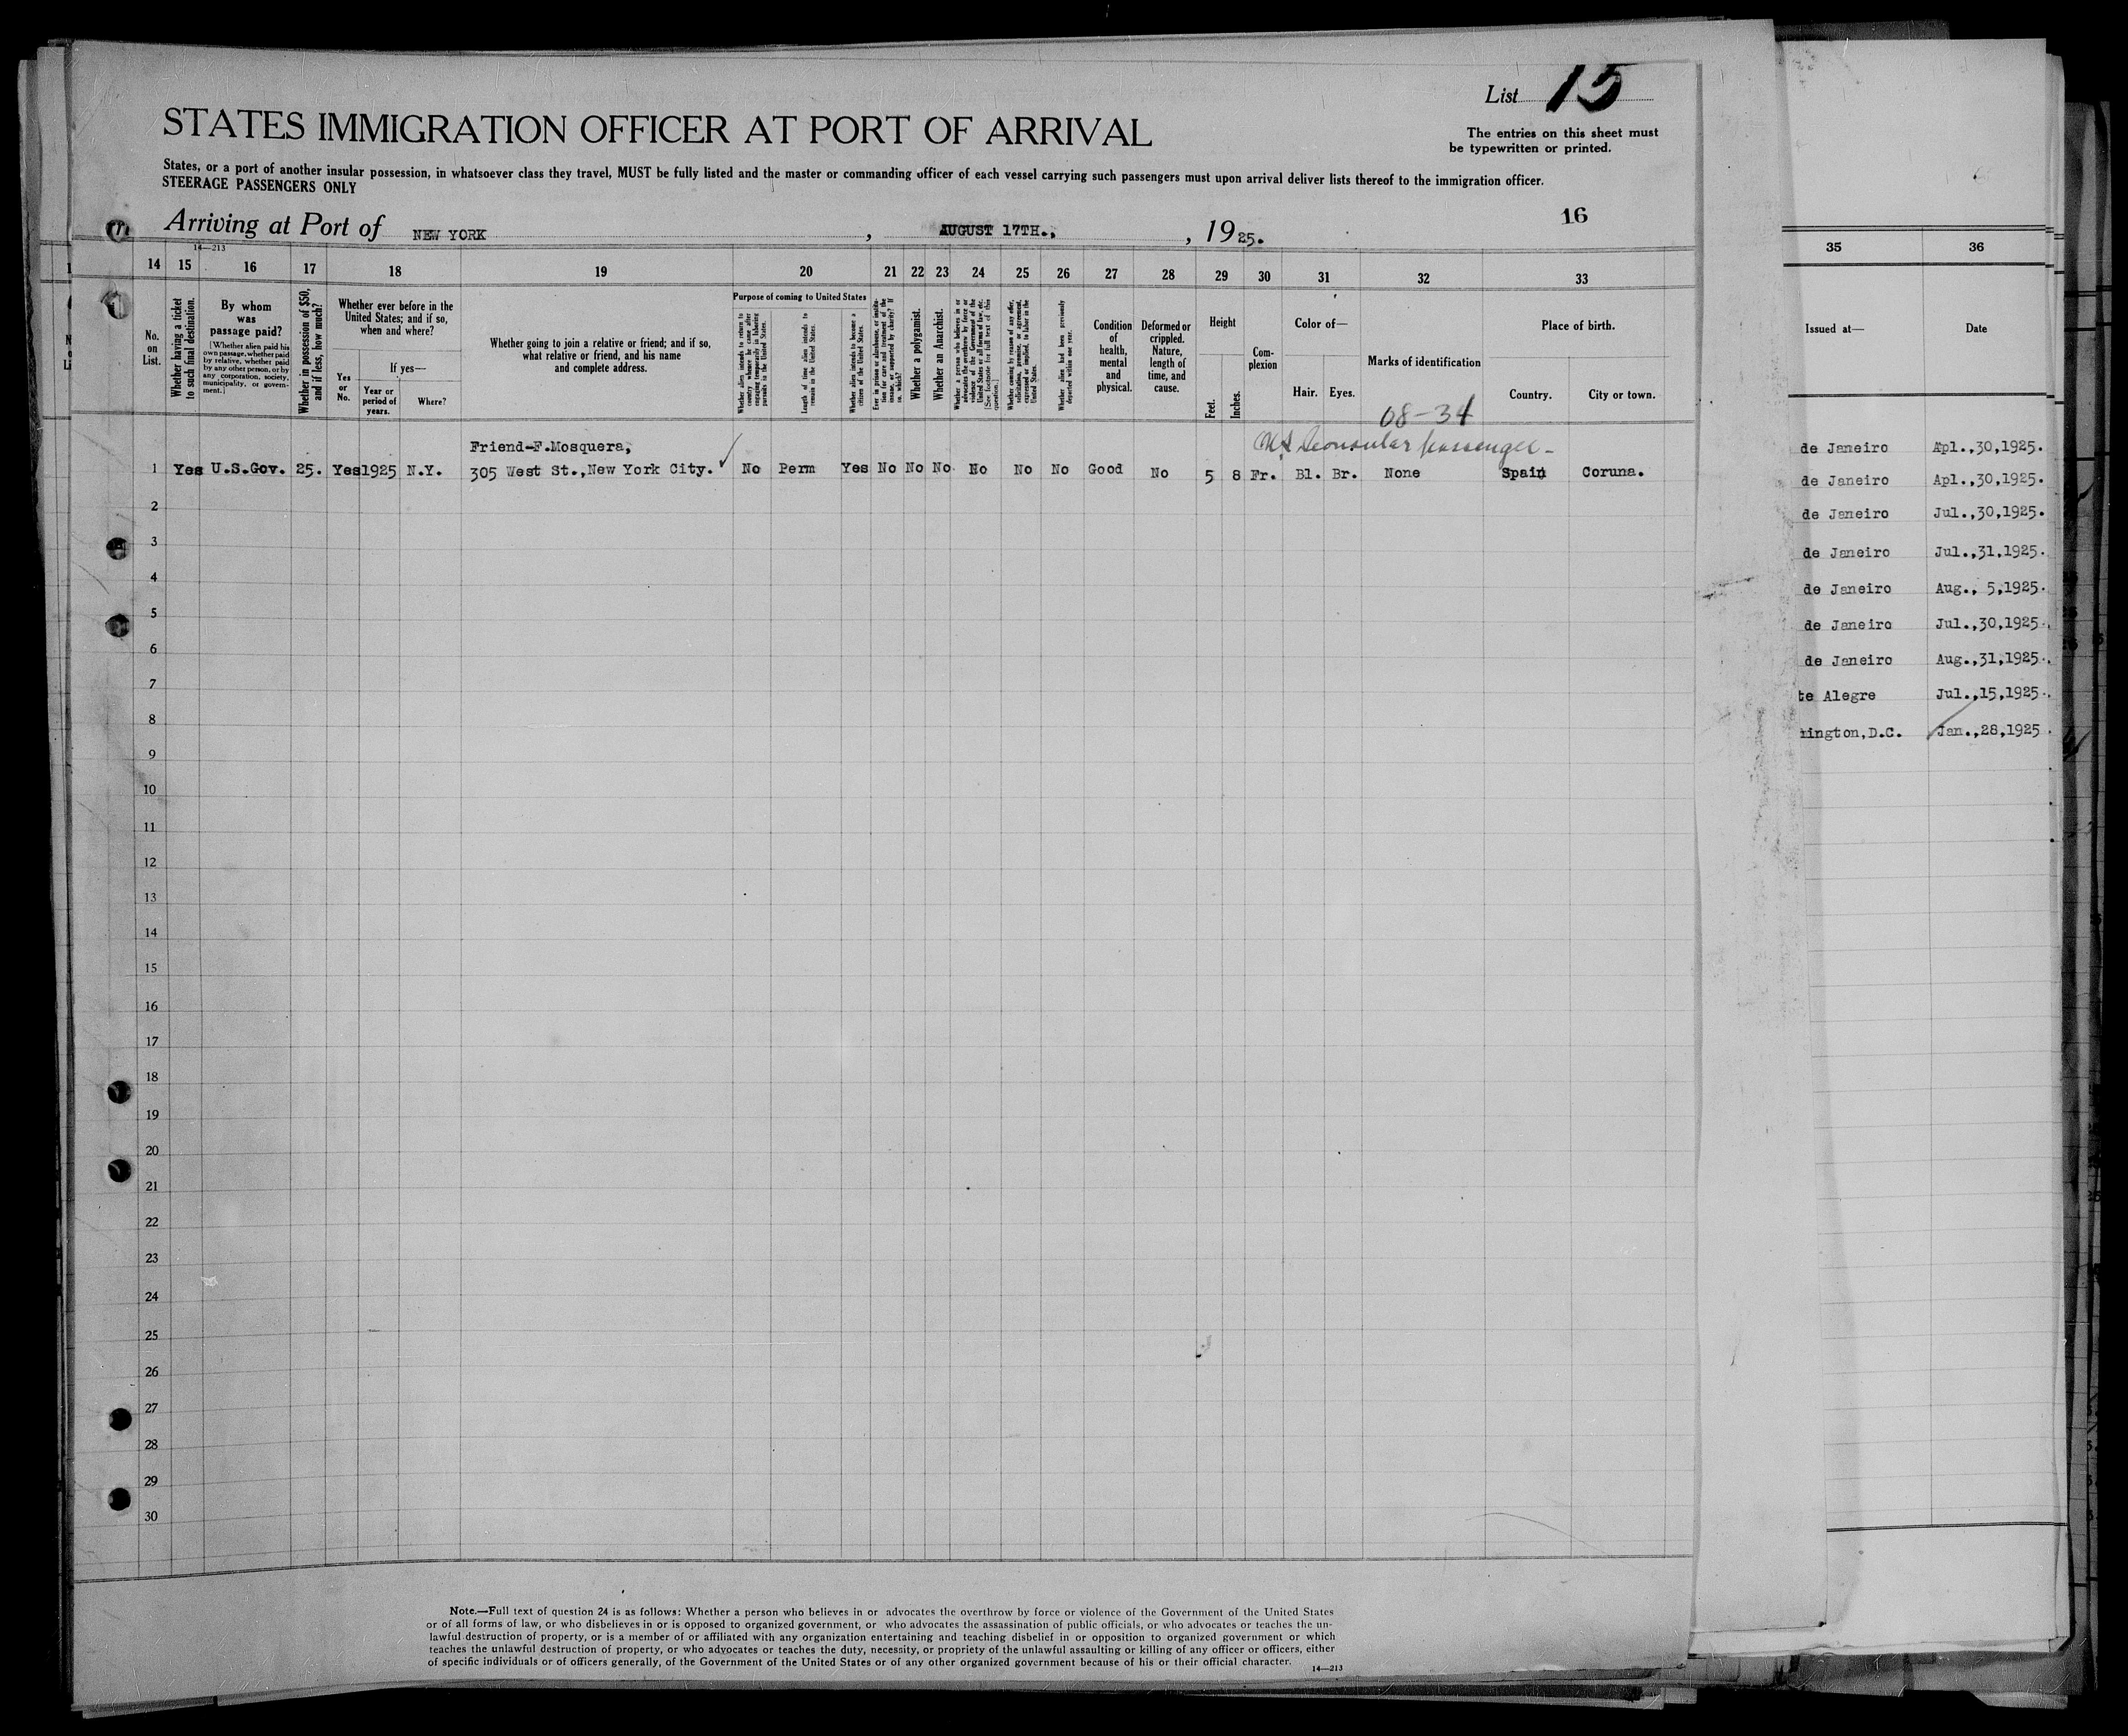 List 15
STATES IMMIGRATION OFFICER AT PORT OF ARRIVAL
The entries on this sheet must
be typewritten or printed.
States, or a port of another insular possession, in whatsoever class they travel, MUST be fully listed and the master or commanding officer of each vessel carrying such passengers must upon arrival deliver lists thereof to the immigration officer.
STEERAGE PASSENGERS ONLY
16
Arriving at Port of NEW YORK, AUGUST 17TH., , 1925.
14—213
14 15 16 17 18 19 20 21 22 23 24 25 26 27 28 29 30 31 32 33
No. on List.
Whether having a ticket to such final destination.
By whom was passage paid?
[Whether alien paid his own passage, whether paid by relative, whether paid by any other person, or by any corporation, society, municipality, or government.]
Whether in possession of $50, and if less, how much?
Whether ever before in the United States; and if so, when and where?
Yes or No.
If yes—
Year or period of years.
Where?
Whether going to join a relative or friend; and if so, what relative or friend, and his name and complete address.
Purpose of coming to United States
Whether alien intends to return to country whence he came after engaging temporarily in laboring pursuits in the United States.
Length of time alien intends to remain in the United States.
Whether alien intends to become a citizen of the United States.
Ever in prison or almshouse, or institution for care and treatment of the insane, or supported by charity? If so, which?
Whether a polygamist.
Whether an Anarchist.
Whether a person who believes in or advocates the overthrow by force or violence of the Government of the United States or all forms of law, etc. [See footnote for full text of this question.]
Whether coming by reason of any offer, solicitation, promise, or agreement, expressed or implied, to labor in the United States.
Whether alien had been previously deported within one year.
Condition of health, mental and physical.
Deformed or crippled. Nature, length of time, and cause.
Height
Feet. Inches.
Complexion
Color of—
Hair. Eyes.
Marks of identification
Place of birth.
Country. City or town.
08-34
US Consular passenger -
Friend-F.Mosquera,
1 Yes U.S.Gov. 25. Yes 1925 N.Y. 305 West St.,New York City. No Perm Yes No No No No No No Good No 5 8 Fr. Bl. Br. None Spain Coruna.
2
3
4
5
6
7
8
9
10
11
12
13
14
15
16
17
18
19
20
21
22
23
24
25
26
27
28
29
30
Note.—Full text of question 24 is as follows: Whether a person who believes in or advocates the overthrow by force or violence of the Government of the United States
or of all forms of law, or who disbelieves in or is opposed to organized government, or who advocates the assassination of public officials, or who advocates or teaches the un-
lawful destruction of property, or is a member of or affiliated with any organization entertaining and teaching disbelief in or opposition to organized government or which
teaches the unlawful destruction of property, or who advocates or teaches the duty, necessity, or propriety of the unlawful assaulting or killing of any officer or officers, either
of specific individuals or of officers generally, of the Government of the United States or of any other organized government because of his or their official character.
14—213
35 36
Issued at— Date
de Janeiro Apl.,30,1925.
de Janeiro Apl.,30,1925.
de Janeiro Jul.,30,1925.
de Janeiro Jul.,31,1925.
de Janeiro Aug., 5,1925.
de Janeiro Jul.,30,1925.
de Janeiro Aug.,31,1925.
te Alegre Jul.,15,1925.
ington,D.C. Jan.,28,1925.